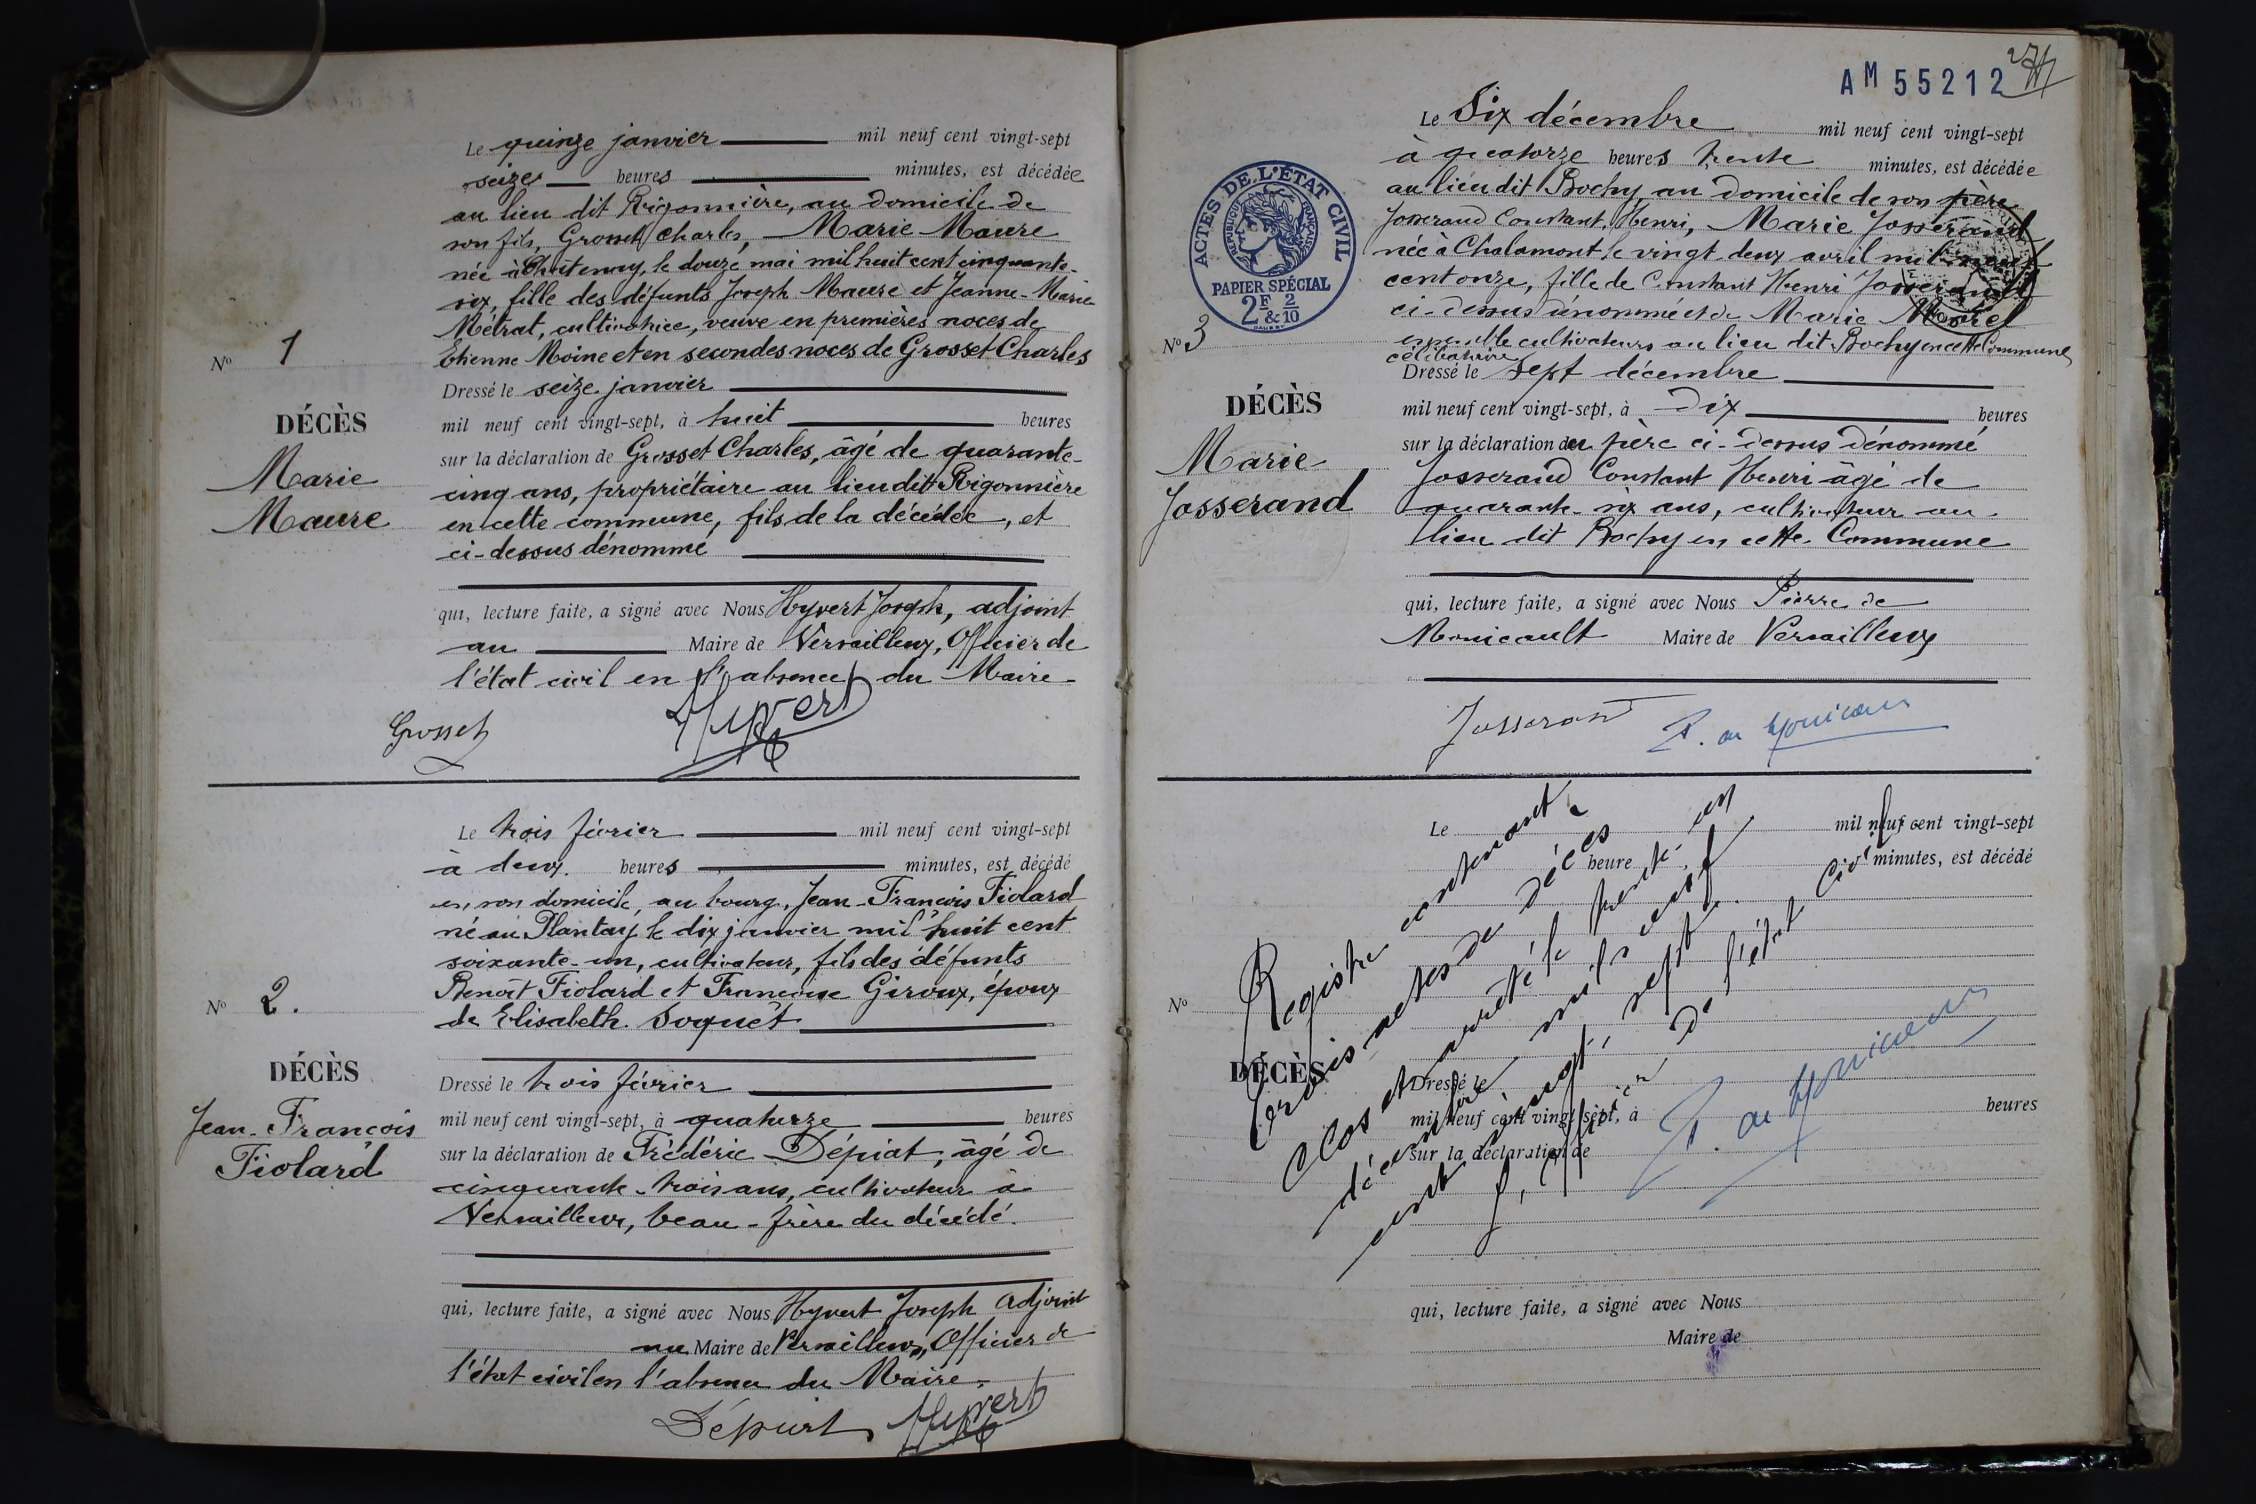 Le quinze janvier mil neuf cent vingt-sept
seize heures minutes, est décédée
au lieu dit Rigonnière, au domicile de
son fils, Grosset Charles, Marie Maure
née à Chatenay, le douze mai mil huit cent cinquante-
six, fille des défunts Joseph Maure et Jeanne-Marie
Métrat, cultivatrice, veuve en premières noces de
Etienne Moine et en secondes noces de Grosset Charles
Nº 1
DÉCÈS
Marie
Maure
Dressé le seize janvier
mil neuf cent vingt-sept, à huit heures
sur la déclaration de Grosset Charles, âgé de quarante-
cinq ans, propriétaire au lieu dit Rigonnière
en cette commune, fils de la décédée, et
ci-dessus dénommé
qui, lecture faite, a signé avec Nous Hyvert Joseph, adjoint
au Maire de Versailleux, Officier de
l'état civil en l'absence du Maire
Grosset Hyvert
Le trois février mil neuf cent vingt-sept
à deux heures minutes, est décédé
en son domicile au bourg, Jean-François Fiolard
né au Plantay le dix janvier mil huit cent
soixante-un, cultivateur, fils des défunts
Benoît Fiolard et Françoise Giroux, époux
de Elisabeth Soquet
Nº 2.
DÉCÈS
Jean-François
Fiolard
Dressé le trois février
mil neuf cent vingt-sept, à quatorze heures
sur la déclaration de Frédéric Dépiat, âgé de
cinquante-trois ans, cultivateur à
Versailleux, beau-frère du décédé.
qui, lecture faite, a signé avec Nous Hyvert Joseph Adjoint
au Maire de Versailleux, Officier de
l'état civil en l'absence du Maire.
Dépiat Hyvert
AM 55212
Le Six décembre mil neuf cent vingt-sept
à quatorze heures trente minutes, est décédée
au lieu dit Bochy au domicile de son père
Josserand Constant, Henri, Marie Josserand
née à Chalamont le vingt deux avril mil neuf
cent onze, fille de Constant Henri Josserand
ci-dessus dénommé et de Marie Morel
ensemble cultivateurs au lieu dit Bochy en cette Commune
célibataire
ACTES DE L'ÉTAT CIVIL
RÉPUBLIQUE FRANÇAISE
PAPIER SPÉCIAL
2F & 2/10
Nº 3
DÉCÈS
Marie
Josserand
Dressé le sept décembre
mil neuf cent vingt-sept, à dix heures
sur la déclaration du père ci-dessus dénommé
Josserand Constant Henri âgé de
quarante-six ans, cultivateur au
lieu dit Bochy en cette Commune
qui, lecture faite, a signé avec Nous Pierre de
Monicault Maire de Versailleux
Josserand P. de Monicault
Le mil neuf cent vingt-sept
heure minutes, est décédé
Nº
DÉCÈS
Dressé le
mil neuf cent vingt-sept, à heures
sur la déclaration de
qui, lecture faite, a signé avec Nous
Maire de
Registre contenant
trois actes de décès
clos et arrêté le trente-un
décembre mil neuf
cent vingt-sept.
L'officier de l'état civil
P. de Monicault